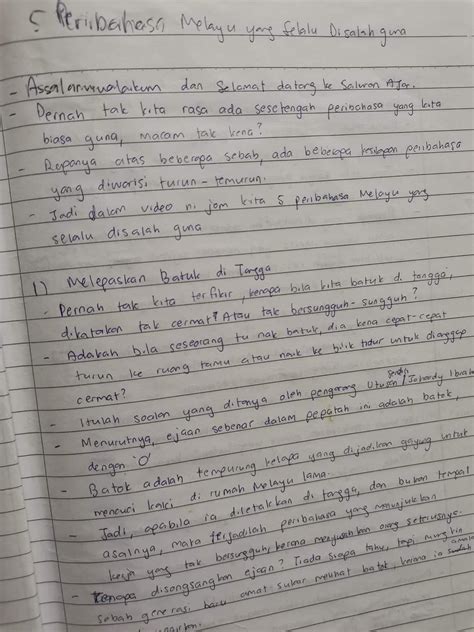 5 Peribahasa Melayu yang Selalu Disalah guna
- Assalammualaikum dan Selamat datang ke Saluran Ajar.
- Pernah tak kita rasa ada sesetengah peribahasa yang kita
biasa guna, macam tak kena?
- Rupanya atas beberapa sebab, ada beberapa peribahasa
yang diwarisi turun-temurun.
- Jadi dalam video ni jom kita 5 peribahasa Melayu yang
selalu disalah guna
1) Melepaskan Batuk di Tangga
- Pernah tak kita terfikir, kenapa bila kita batuk di tangga,
dikatakan tak cermat? Atau tak bersungguh-sungguh?
- Adakah bila seseorang tu nak batuk, dia kena cepat-cepat
turun ke ruang tamu atau naik ke bilik tidur untuk dianggap
cermat?
- Itulah soalan yang ditanya oleh pengarang Utusan
- Menurutnya, ejaan sebenar dalam pepatah ini adalah batok,
dengan 'O'
- Batok adalah tempurung kelapa yang dijadikan gayung untuk
mencuci kaki di rumah Melayu lama.
- Jadi, apabila ia diletakkan di tangga, dan bukan tempat
asalnya, maka terjadilah peribahasa yang menunjukkan
kerja yang tak bersungguh, kerana menyusahkan orang seterusnya.
- Kenapa disongsangkan ejaan? Tiada siapa tahu, tapi mungkin
sebab generasi baru amat sukar melihat batok, kerana ia sudah